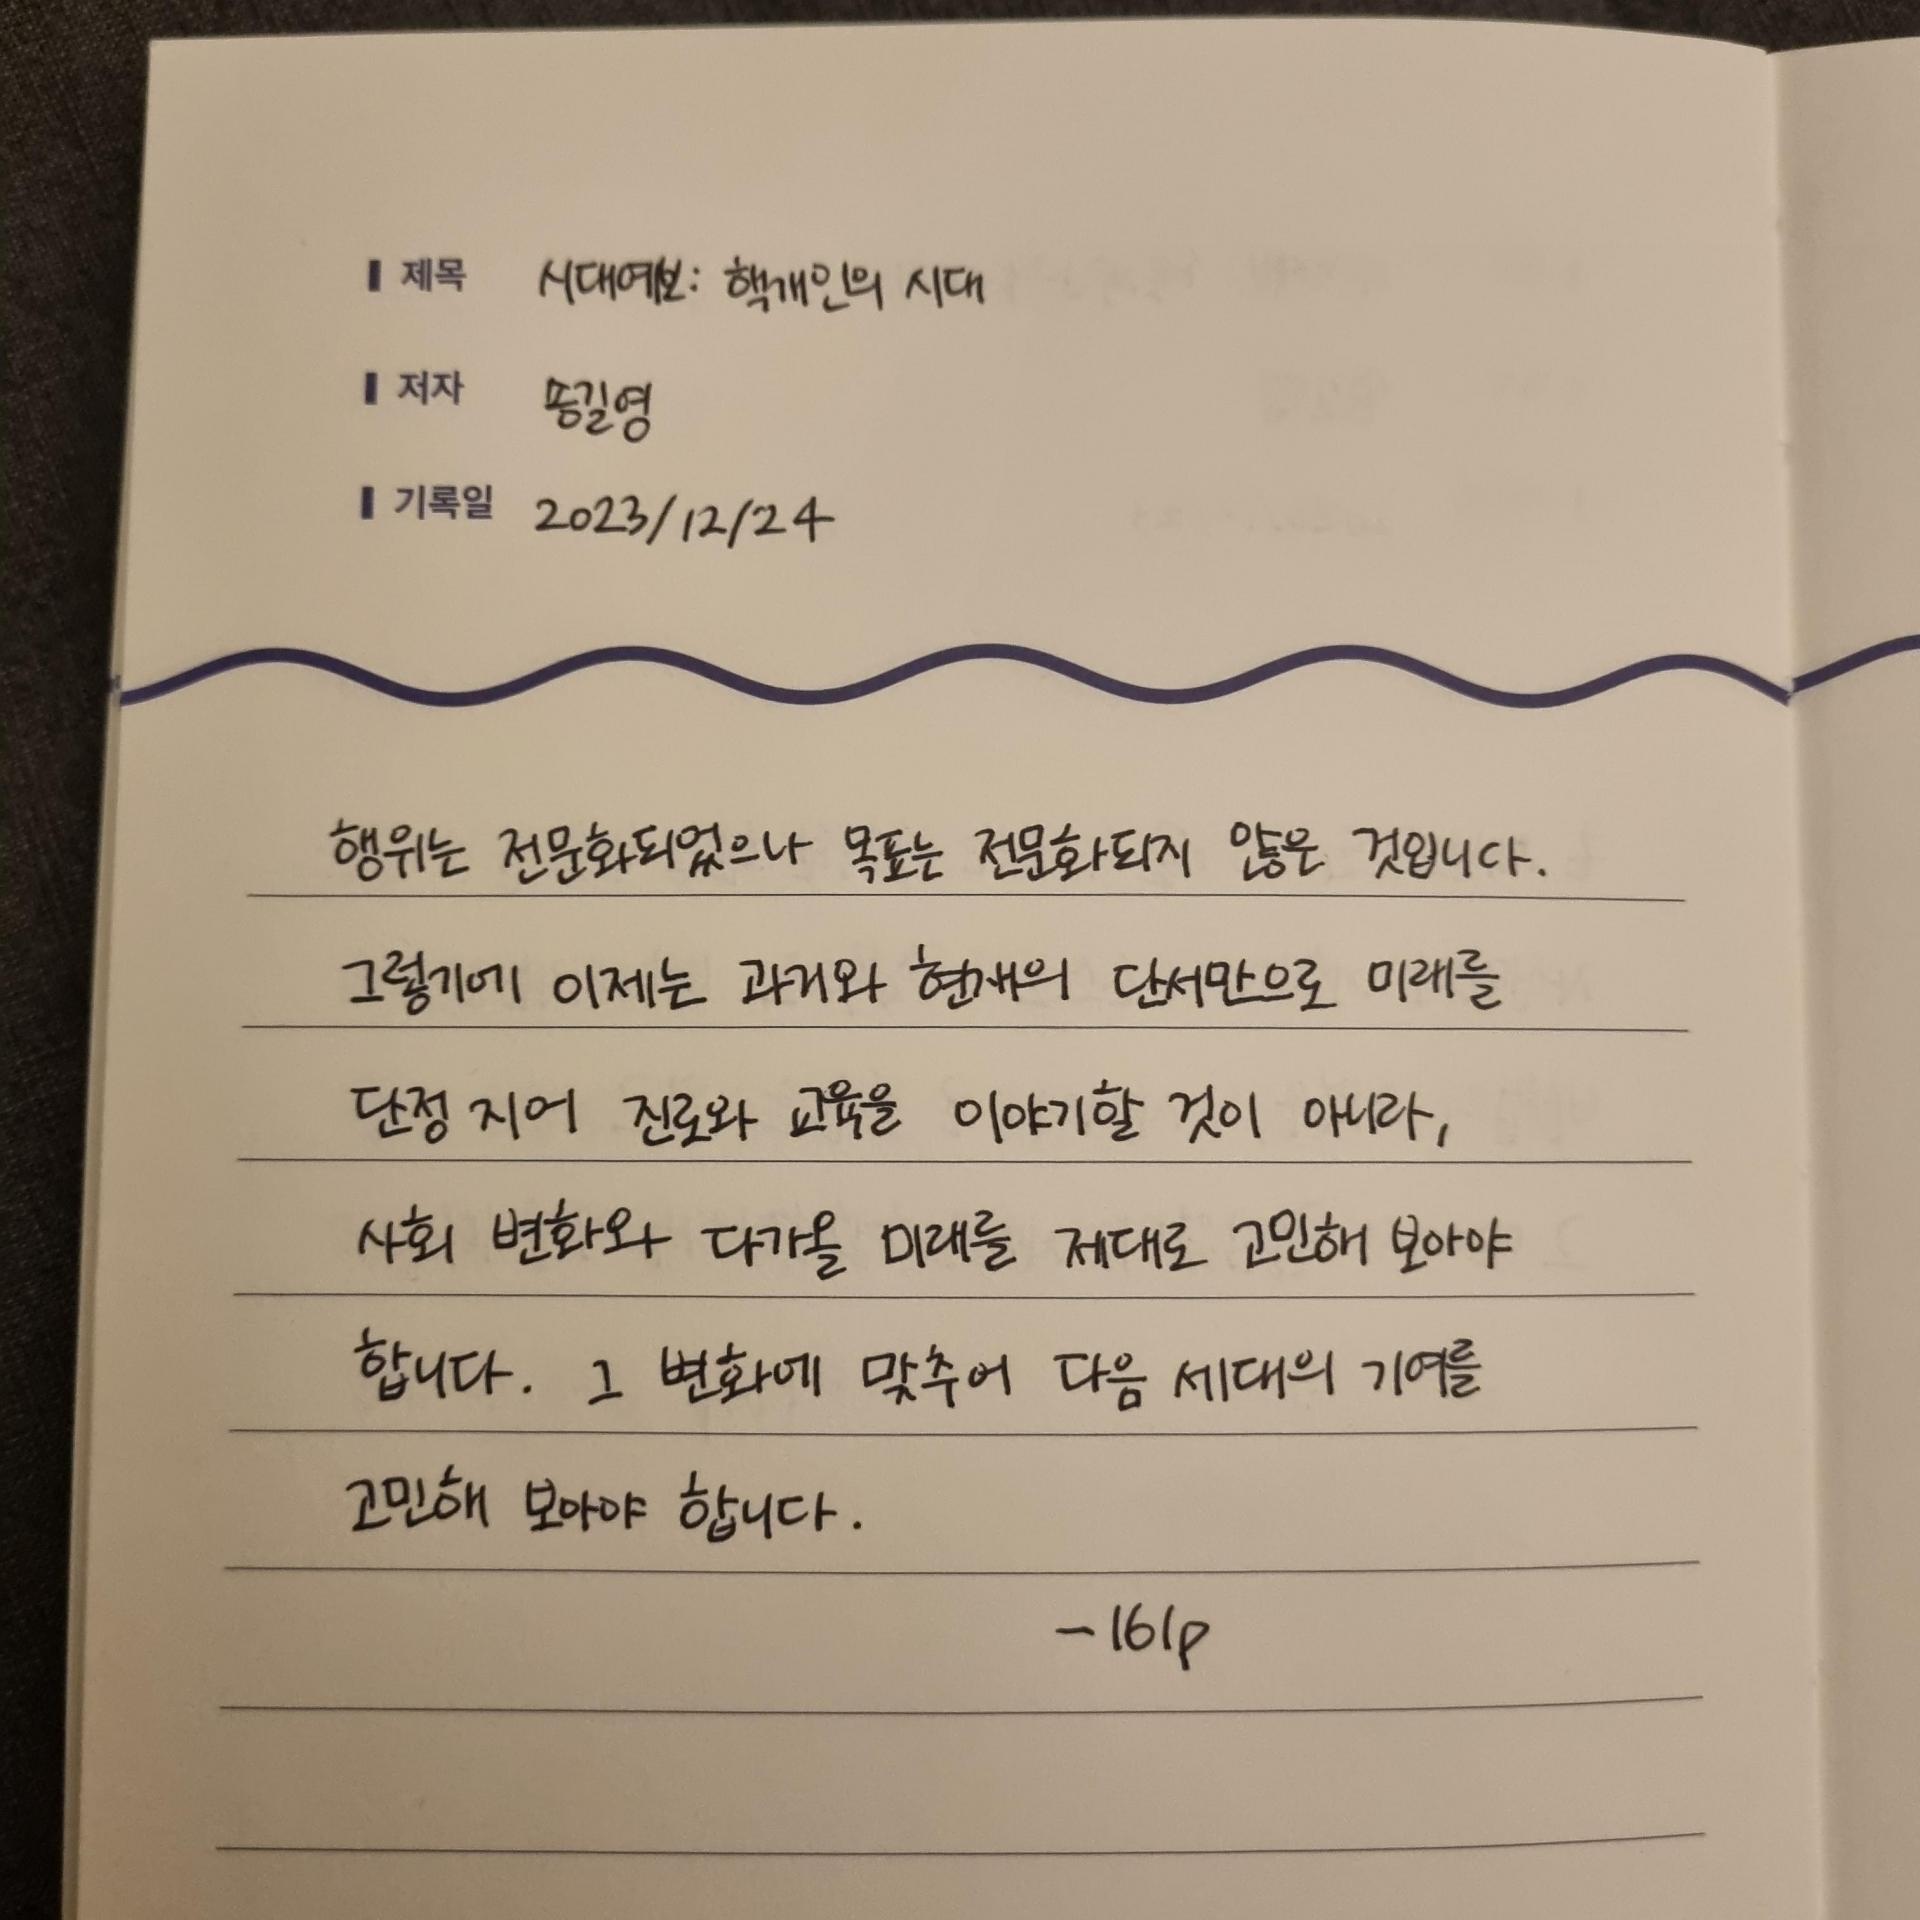 제목 시대예보: 핵개인의 시대
저자 송길영
기록일 2023/12/24
행위는 전문화되었으나 목표는 전문화되지 않은 것입니다.
그렇기에 이제는 과거와 현재의 단서만으로 미래를
단정 지어 진로와 교육을 이야기할 것이 아니라,
사회 변화와 다가올 미래를 제대로 고민해 보아야
합니다. 그 변화에 맞추어 다음 세대의 기여를
고민해 보아야 합니다.
- 161p